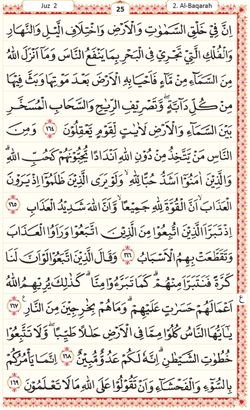 Juz 2
25
2. Al-Baqarah
اِنَّ فِیْ خَلْقِ السَّمٰوٰتِ وَالْاَرْضِ وَاخْتِلَافِ الَّیْلِ وَالنَّهَارِ
وَالْفُلْكِ الَّتِیْ تَجْرِیْ فِی الْبَحْرِ بِمَا یَنْفَعُ النَّاسَ وَمَاۤ اَنْزَلَ اللّٰهُ
مِنَ السَّمَآءِ مِنْ مَّآءٍ فَاَحْیَا بِهِ الْاَرْضَ بَعْدَ مَوْتِهَا وَبَثَّ فِیْهَا
مِنْ كُلِّ دَآبَّةٍ ۪ وَّتَصْرِیْفِ الرِّیٰحِ وَالسَّحَابِ الْمُسَخَّرِ
بَیْنَ السَّمَآءِ وَالْاَرْضِ لَاٰیٰتٍ لِّقَوْمٍ یَّعْقِلُوْنَ ﴿۱۶۴﴾ وَمِنَ
النَّاسِ مَنْ یَّتَّخِذُ مِنْ دُوْنِ اللّٰهِ اَنْدَادًا یُّحِبُّوْنَهُمْ كَحُبِّ اللّٰهِ ؕ
وَالَّذِیْنَ اٰمَنُوْۤا اَشَدُّ حُبًّا لِّلّٰهِ ؕ وَلَوْ یَرَی الَّذِیْنَ ظَلَمُوْۤا اِذْ یَرَوْنَ
الْعَذَابَ ۙ اَنَّ الْقُوَّةَ لِلّٰهِ جَمِیْعًا ۙ وَّاَنَّ اللّٰهَ شَدِیْدُ الْعَذَابِ ﴿۱۶۵﴾
اِذْ تَبَرَّاَ الَّذِیْنَ اتُّبِعُوْا مِنَ الَّذِیْنَ اتَّبَعُوْا وَرَاَوُا الْعَذَابَ
وَتَقَطَّعَتْ بِهِمُ الْاَسْبَابُ ﴿۱۶۶﴾ وَقَالَ الَّذِیْنَ اتَّبَعُوْا لَوْ اَنَّ لَنَا
كَرَّةً فَنَتَبَرَّاَ مِنْهُمْ كَمَا تَبَرَّءُوْا مِنَّا ؕ كَذٰلِكَ یُرِیْهِمُ اللّٰهُ
اَعْمَالَهُمْ حَسَرٰتٍ عَلَیْهِمْ ؕ وَمَا هُمْ بِخٰرِجِیْنَ مِنَ النَّارِ ﴿۱۶۷﴾
یٰۤاَیُّهَا النَّاسُ كُلُوْا مِمَّا فِی الْاَرْضِ حَلٰلًا طَیِّبًا ۖ وَّلَا تَتَّبِعُوْا
خُطُوٰتِ الشَّیْطٰنِ ؕ اِنَّهٗ لَكُمْ عَدُوٌّ مُّبِیْنٌ ﴿۱۶۸﴾ اِنَّمَا یَاْمُرُكُمْ
بِالسُّوْٓءِ وَالْفَحْشَآءِ وَاَنْ تَقُوْلُوْا عَلَی اللّٰهِ مَا لَا تَعْلَمُوْنَ ﴿۱۶۹﴾